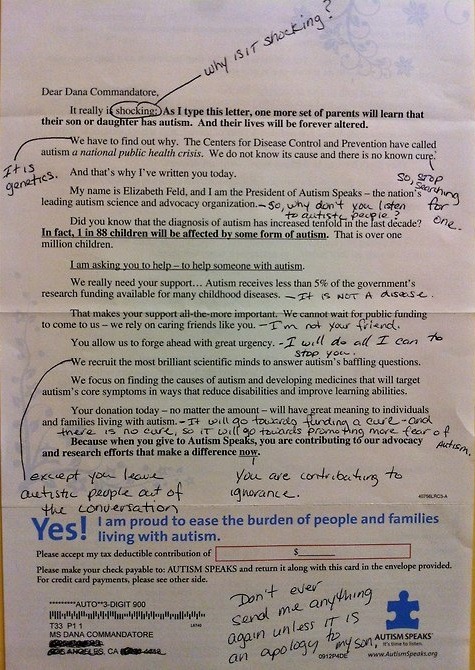 why IS IT shocking?
Dear Dana Commandatore,
It really is shocking: As I type this letter, one more set of parents will learn that
their son or daughter has autism. And their lives will be forever altered.
We have to find out why. The Centers for Disease Control and Prevention have called
autism a national public health crisis. We do not know its cause and there is no known cure.
It is
genetics.
So, stop
searching
for
one.
And that's why I've written you today.
My name is Elizabeth Feld, and I am the President of Autism Speaks – the nation's
leading autism science and advocacy organization. – So, why don't you listen
to autistic people?
Did you know that the diagnosis of autism has increased tenfold in the last decade?
In fact, 1 in 88 children will be affected by some form of autism. That is over one
million children.
I am asking you to help – to help someone with autism.
We really need your support... Autism receives less than 5% of the government's
research funding available for many childhood diseases. – It is NOT a disease.
That makes your support all-the-more important. We cannot wait for public funding
to come to us – we rely on caring friends like you. – I'm not your friend.
You allow us to forge ahead with great urgency. – I will do all I can to
stop you.
We recruit the most brilliant scientific minds to answer autism's baffling questions.
We focus on finding the causes of autism and developing medicines that will target
autism's core symptoms in ways that reduce disabilities and improve learning abilities.
Your donation today – no matter the amount – will have great meaning to individuals
and families living with autism. – It will go towards funding a cure - and
there is no cure, so it will go towards promoting more fear of
Autism.
Because when you give to Autism Speaks, you are contributing to our advocacy
and research efforts that make a difference now.
except you leave
autistic people out of
the conversation
You are contributing to
ignorance.
40756LRC3-A
Yes! I am proud to ease the burden of people and families
living with autism.
Please accept my tax deductible contribution of $
Please make your check payable to: AUTISM SPEAKS and return it along with this card in the envelope provided.
For credit card payments, please see other side.
*********AUTO**3-DIGIT 900
T33 P1 1
MS DANA COMMANDATORE
LOS ANGELES, CA
Don't ever
send me anything
again unless it is
an apology to my son.
AUTISM SPEAKS
It's time to listen.
0912P4DE www.AutismSpeaks.org